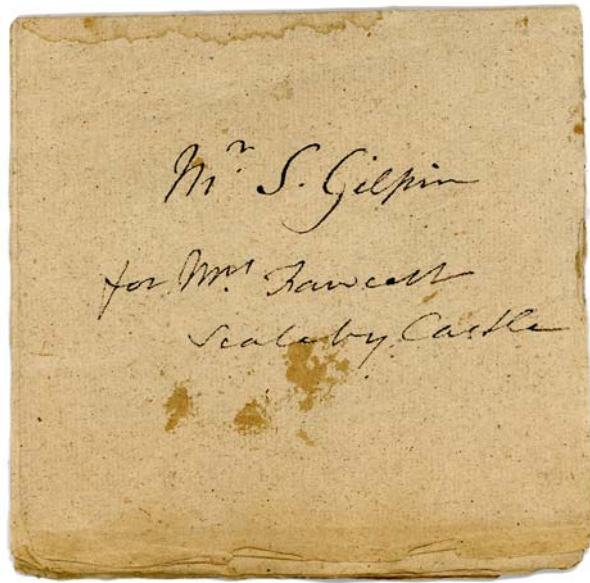 Mr. S. Gilpin
for Mrs. Fawcett
Scaleby Castle